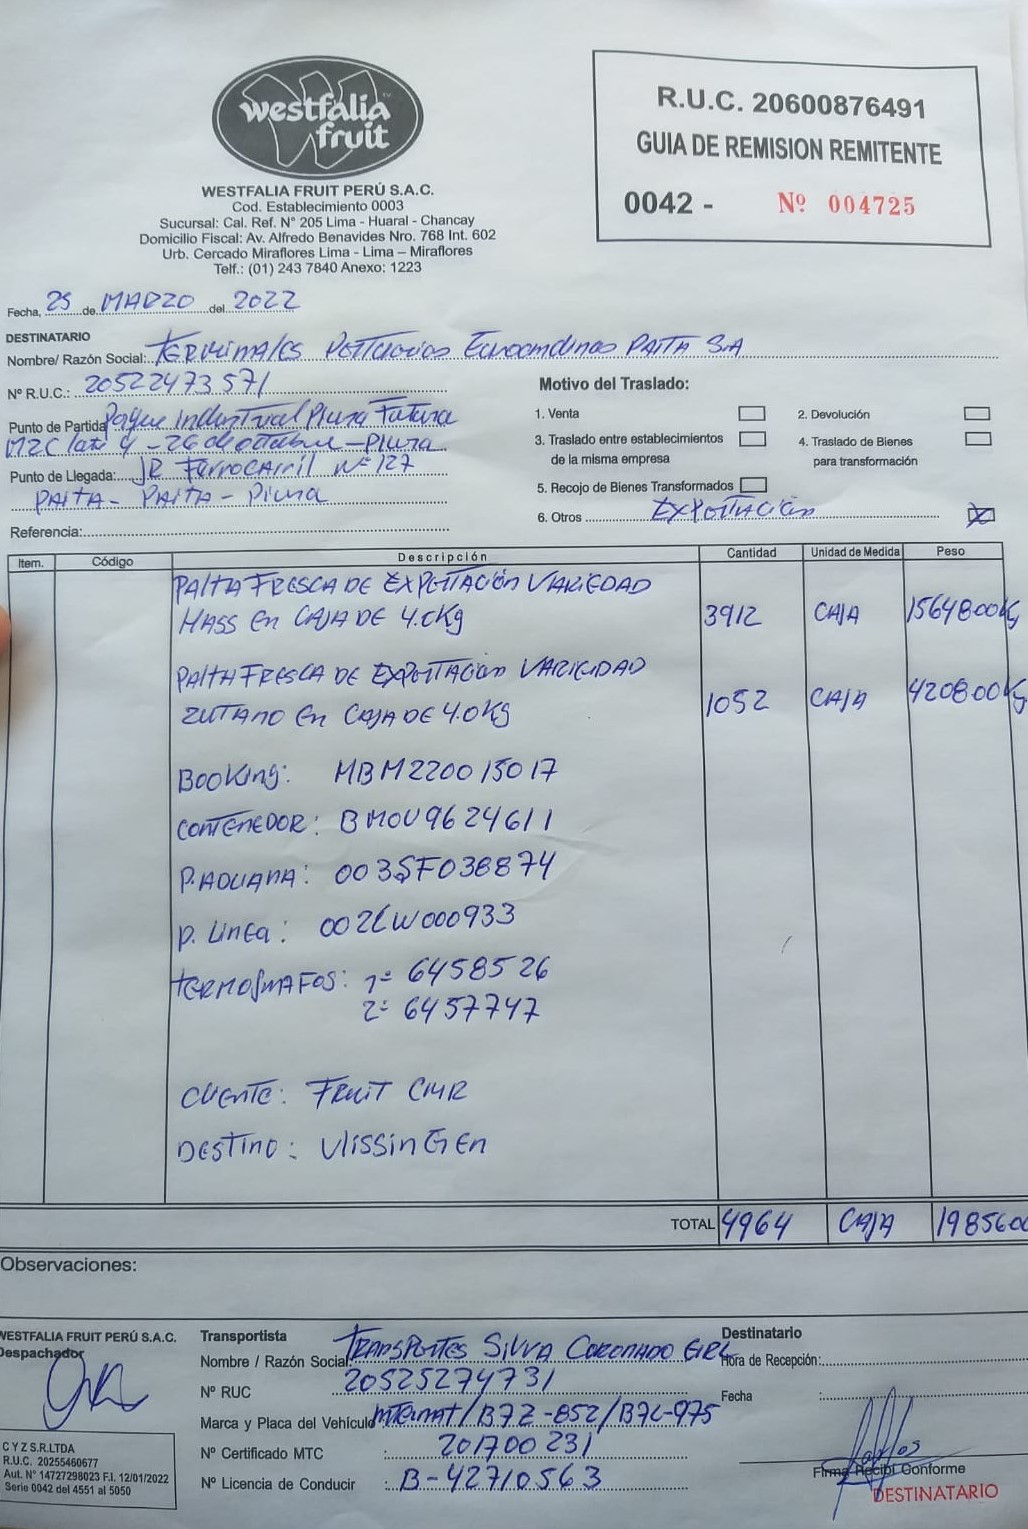 westfalia
fruit
WESTFALIA FRUIT PERÚ S.A.C.
Cod. Establecimiento 0003
Sucursal: Cal. Ref. N° 205 Lima - Huaral - Chancay
Domicilio Fiscal: Av. Alfredo Benavides Nro. 768 Int. 602
Urb. Cercado Miraflores Lima - Lima – Miraflores
Telf.: (01) 243 7840 Anexo: 1223
R.U.C. 20600876491
GUIA DE REMISION REMITENTE
0042 - Nº 004725
Fecha, 25 de MARZO del 2022
DESTINATARIO
Nombre/ Razón Social: TERMINALES PORTUARIOS Euroandinos PAITA SA
Nº R.U.C.: 20522473571
Punto de Partida Parque Industrial Piura Futura
MZC lote 4 - 26 de octubre - Piura
Punto de Llegada: JR FerroCArril Nº 127
PAITA - PAITA - Piura
Referencia:
Motivo del Traslado:
1. Venta
2. Devolución
3. Traslado entre establecimientos
de la misma empresa
4. Traslado de Bienes
para transformación
5. Recojo de Bienes Transformados
6. Otros EXPORTACIÓN X
Item. Código Descripción Cantidad Unidad de Medida Peso
PALTA FRESCA DE EXPORTACIÓN VARIEDAD
HASS En CAJA DE 4.0Kg 3912 CAJA 15648.00Kg
PALTA FRESCA DE EXPORTACIÓN VARIEDAD
ZUTANO En CAJA DE 4.0Kg 1052 CAJA 4208.00Kg
BOOKING: MBM220015017
CONTENEDOR: BMOU9624611
P. ADUANA: 003SF038874
P. Linea: 002LW000933
TERMOGRAFOS: 1= 6458526
2= 6457747
CLIENTE: FRUIT CMR
DESTINO: VlissinGEn
TOTAL 4964 CAJA 19856.00
Observaciones:
WESTFALIA FRUIT PERÚ S.A.C.
Despachador
Transportista
Nombre / Razón Social: TRANSPORTES SILVA CORONADO EIRL
Nº RUC 20525274731
Marca y Placa del Vehículo: Internat/B7Z-852/B7L-975
Nº Certificado MTC : 201700231
Nº Licencia de Conducir : B-42710563
Destinatario
Hora de Recepción:
Fecha :
Firma Recibí Conforme
DESTINATARIO
C Y Z S.R.LTDA
R.U.C. 20255460677
Aut. N° 14727298023 F.I. 12/01/2022
Serie 0042 del 4551 al 5050